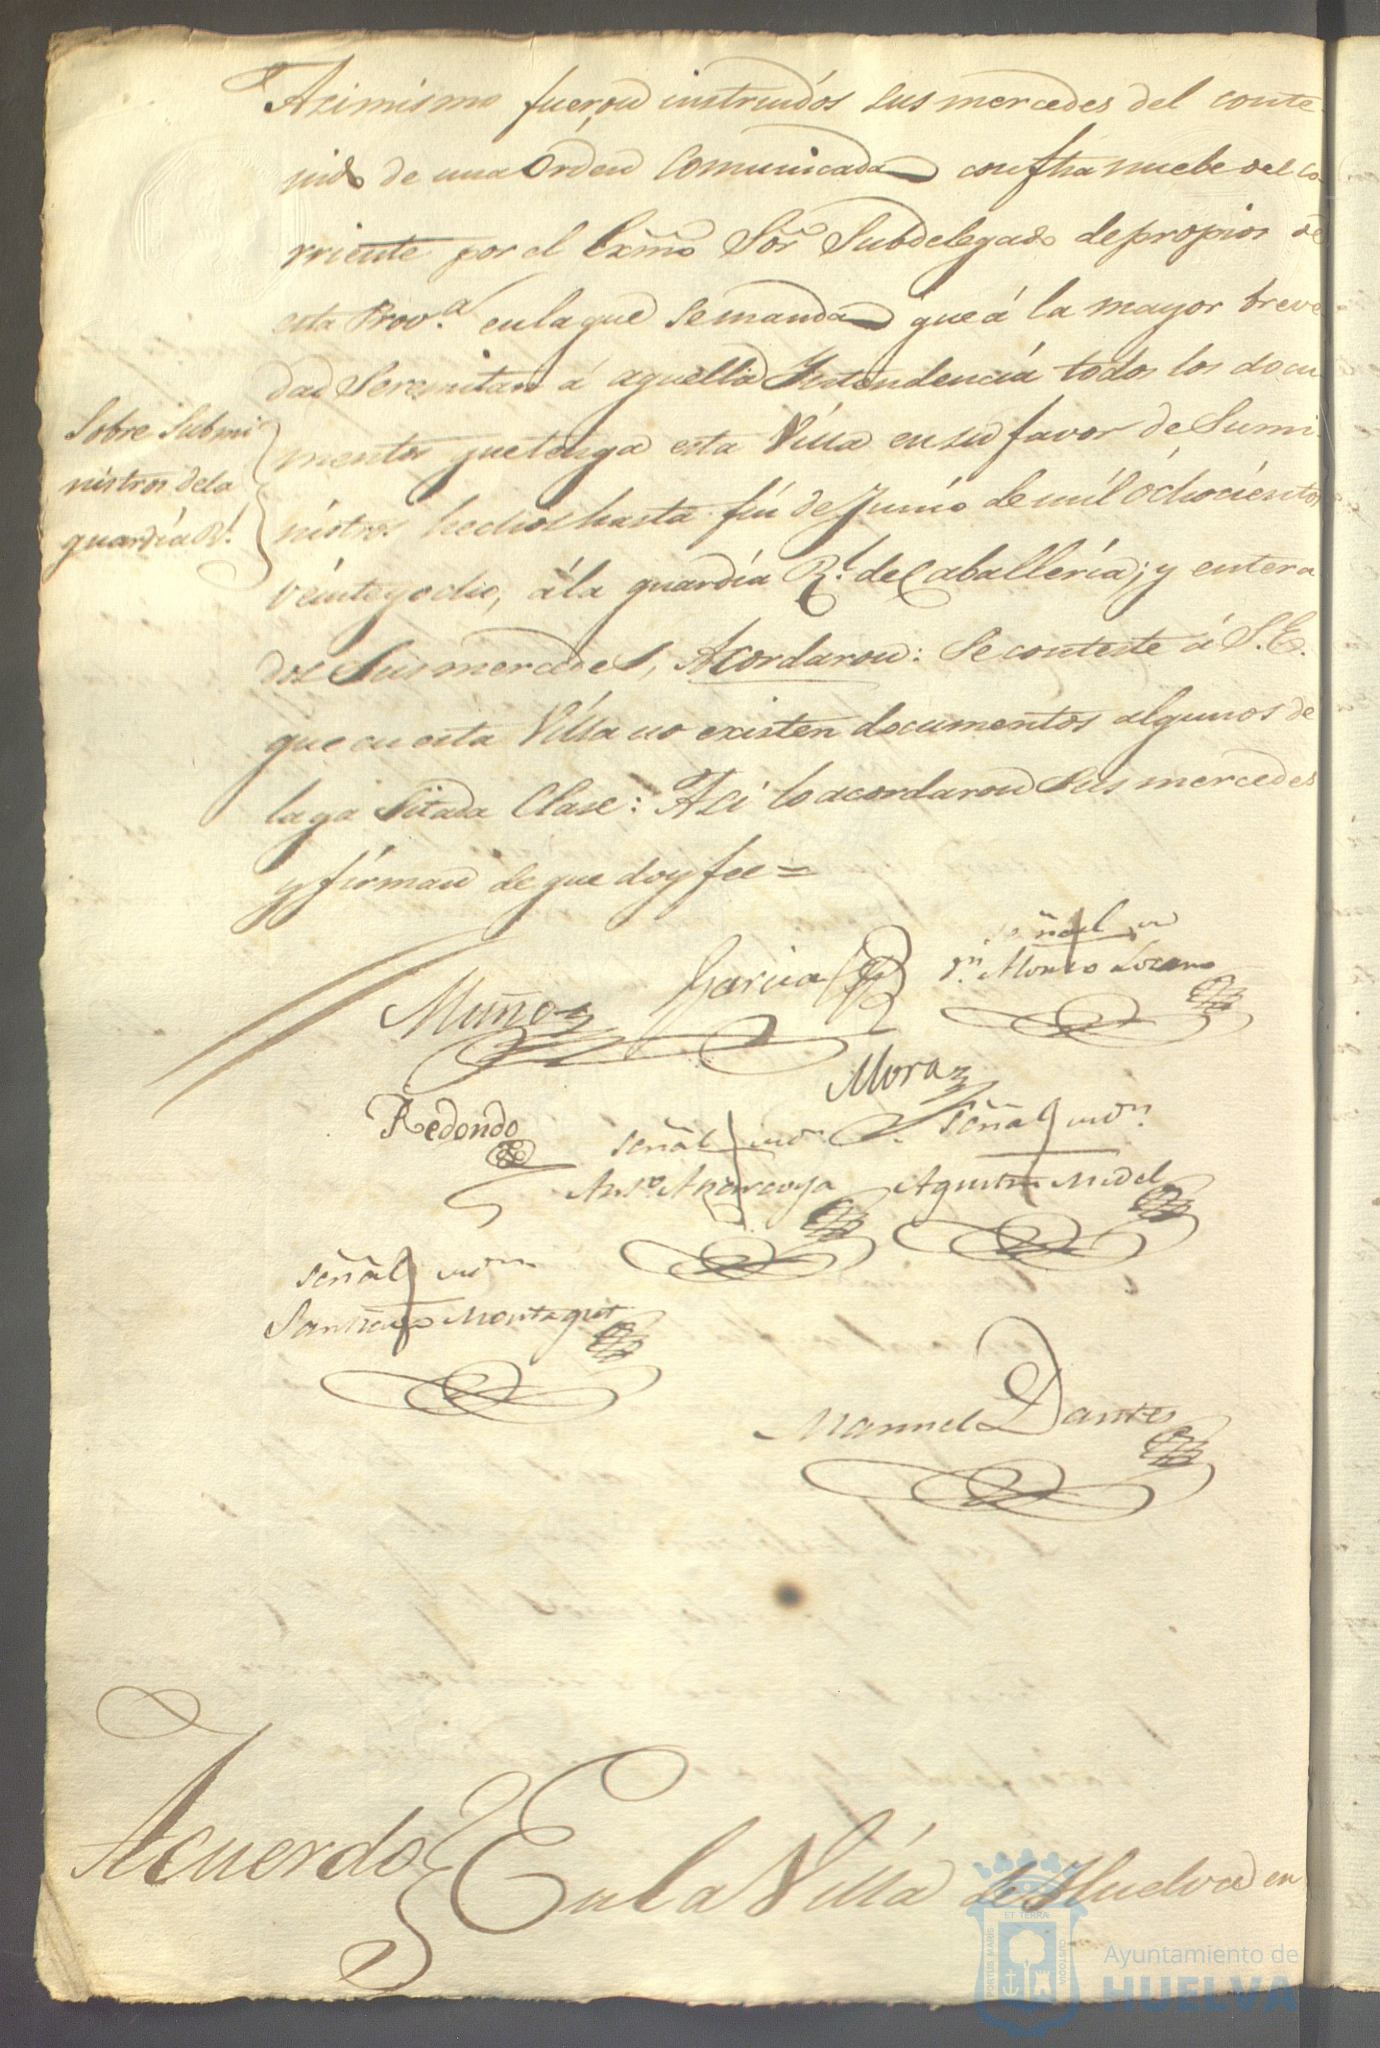 Asimismo fueron instruidos sus mercedes del conte-
nido de una Orden comunicada con fha nuebe del co-
rriente por el Exmo Sor Subdelegado de propios de
esta Prov.a en la que se manda que á la mayor breve-
dad se remitan á aquella Intendencia todos los docu-
mentos que tenga esta Villa en su favor de Sumi-
nistros hechos hasta fin de Junio de mil ochocientos
veinte y ocho, á la guardia Rl. de Caballería; y entera-
dos sus mercedes, Acordaron: Se conteste á S.E.
que en esta Villa no existen documentos algunos de
la ga sitada Clase: Asi lo acordaron sus mercedes
y firman de que doy fee =
Sobre Submi
nistros de la
guardia Rl.
Muñoz
Garcia
señal
Dn. Alonso Lozano
Mora
Redondo
señal
Anto.
señal
Agustin Midel
señal
Santiago Montagut
Manuel Dantes
Acuerdo
En la Villa de Huelva en
PORTUS MARIS ET TERRAE CUSTODIA
Ayuntamiento de
HUELVA